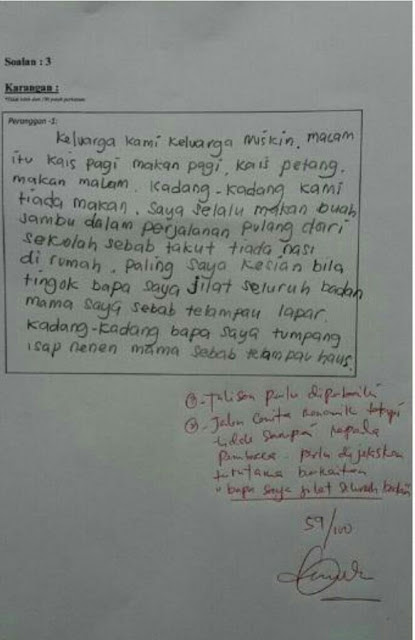 Soalan : 3
Karangan :
Perenggan -1:
Keluarga kami Keluarga miskin, macam
itu kais pagi makan pagi, kais petang.
makan malam. Kadang-kadang kami
tiada makan. Saya selalu makan buah
jambu dalam perjalanan pulang dari
sekolah sebab takut tiada nasi
di rumah. paling saya kesian bila
tingok bapa saya jilat seluruh badan
mama saya sebab telampau lapar.
Kadang-kadang bapa saya tumpang
isap nenen mama sebab telampau haus.
- Tulisan perlu diperbaiki
- Jalan cerita menarik tetapi
tidak sampai kepada
pembaca - perlu dijelaskan
terutama berkaitan
" bapa saya jilat seluruh badan
59/100